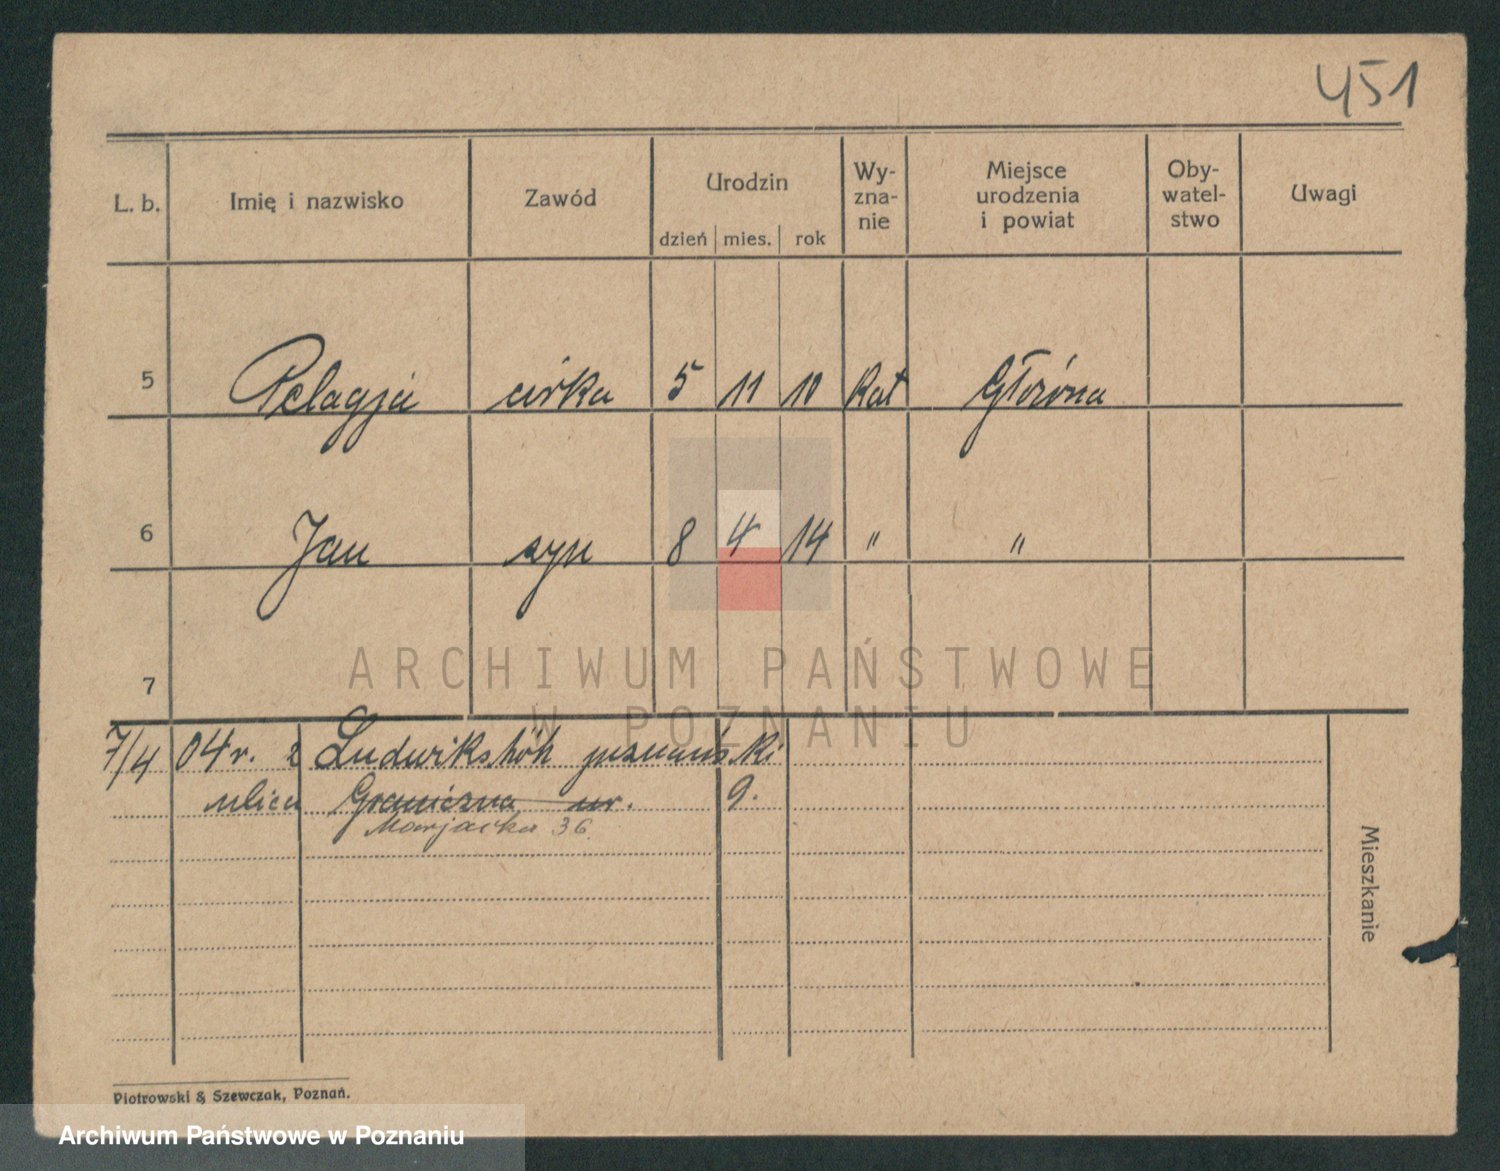 451
L. b. Imię i nazwisko Zawód Urodzin Wy-zna-nie Miejsce urodzenia i powiat Oby-watel-stwo Uwagi
dzień mies. rok
5 Pelagja córka 5 11 10 Kat Główna
6 Jan syn 8 4 14 " "
7
ARCHIWUM PAŃSTWOWE
W POZNANIU
7/4 04 r. z Ludwikshöh poznański
ulica Graniczna nr. 9.
Marjacka 36
Mieszkanie
Piotrowski & Szewczak, Poznań.
Archiwum Państwowe w Poznaniu